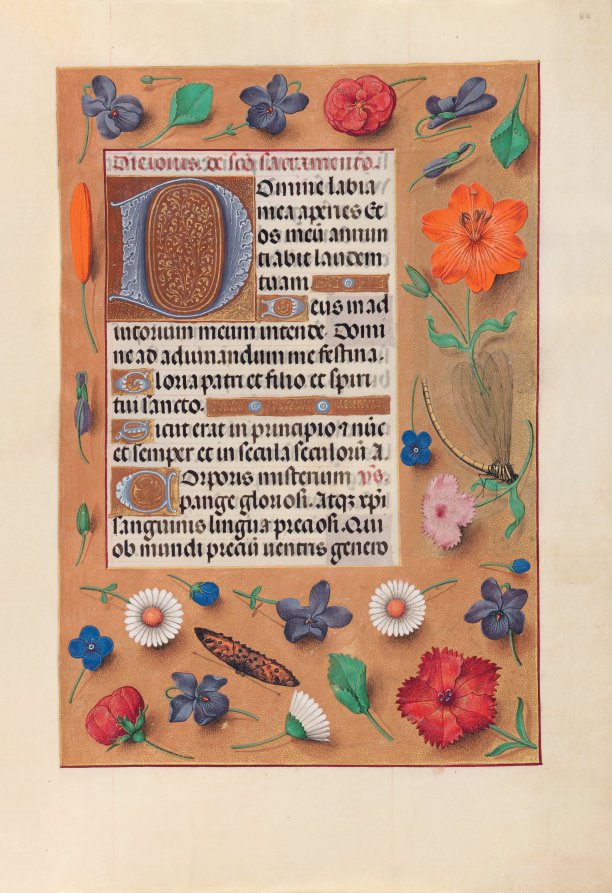 Die iovis. de sc̄o sacramento.
Domine labia
mea aperies Et
os meū annun
tiabit laudem
tuam
Deus in ad
iutorium meum intende. Domi
ne ad adiuuandum me festina.
Gloria patri et filio et spiri
tui sancto.
Sicut erat in principio et nūc
et semper et in secula seculorū a.
Corporis misterium ym̄s.
pange gloriosi. Atqz xp̄i
sanguinis lingua preciosi. Qui
ob mundi preciū uentris genero